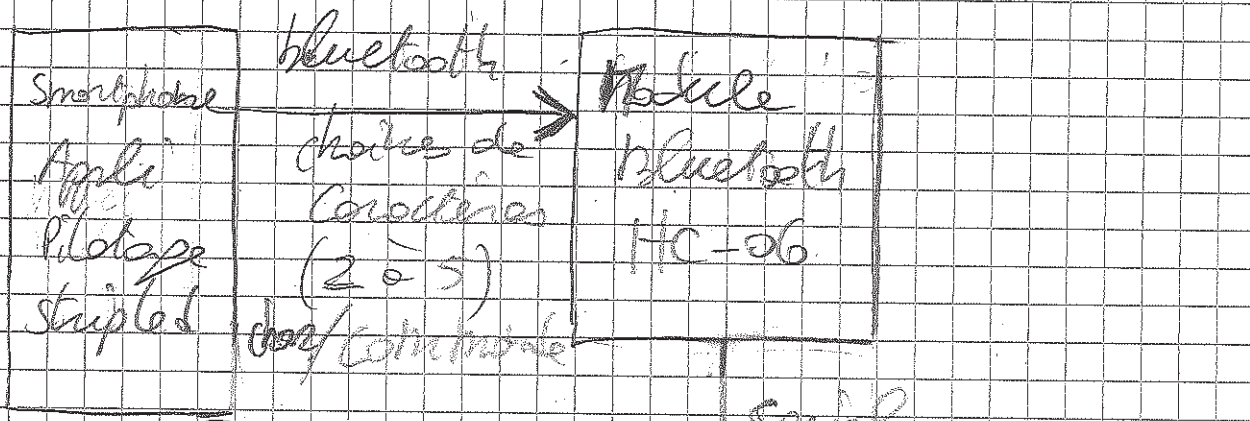 Smartphone
Appli
Pilotage
stripled
bluetooth
chaînes de
Caractères
(2 à 5)
char/commande
Module
Bluetooth
HC-06